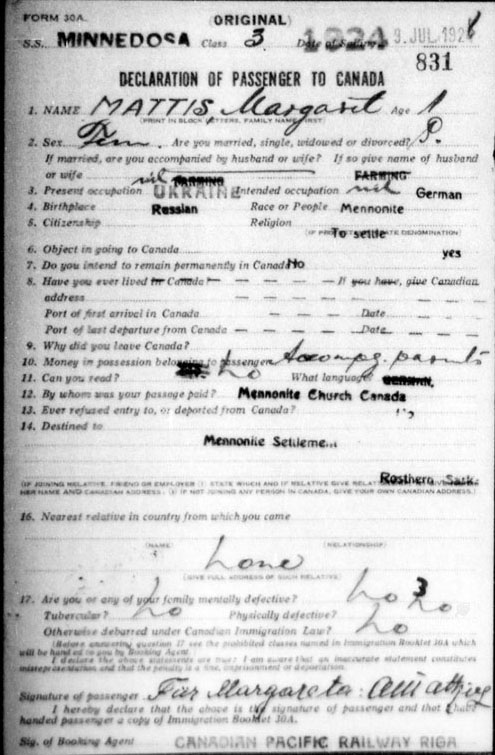 FORM 30A.
(ORIGINAL)
S.S. MINNEDOSA Class 3 Date of Sailing 9 JUL 192
831
DECLARATION OF PASSENGER TO CANADA
1. NAME MATTIS Margaret Age 1
(PRINT IN BLOCK LETTERS, FAMILY NAME FIRST)
2. Sex Fem. Are you married, single, widowed or divorced? S.
If married, are you accompanied by husband or wife? If so give name of husband
or wife
3. Present occupation nil FARMING Intended occupation nil FARMING
4. Birthplace UKRAINE Race or People German
5. Citizenship Russian Religion Mennonite
6. Object in going to Canada To settle
7. Do you intend to remain permanently in Canada? yes
8. Have you ever lived in Canada? No If you have, give Canadian
address
Port of first arrival in Canada Date
Port of last departure from Canada Date
9. Why did you leave Canada?
10. Money in possession belonging to passenger Accompg. parents
11. Can you read? no What language? GERMAN.
12. By whom was your passage paid? Mennonite Church Canada
13. Ever refused entry to, or deported from Canada?
14. Destined to
Mennonite Settleme
Rosthern Sask.
(IF JOINING RELATIVE, FRIEND OR EMPLOYER STATE WHICH AND IF RELATIVE GIVE
HER NAME AND CANADIAN ADDRESS. IF NOT JOINING ANY PERSON IN CANADA, GIVE YOUR OWN CANADIAN ADDRESS.)
16. Nearest relative in country from which you came
(NAME) (RELATIONSHIP)
none
(GIVE FULL ADDRESS OF SUCH RELATIVE)
17. Are you or any of your family mentally defective? no 3
Tubercular? no Physically defective? no
Otherwise debarred under Canadian Immigration Law? no
(Before answering question 17 see the prohibited classes named in Immigration Booklet 30A which
will be handed to you by Booking Agent.
I declare the above statements are true: I am aware that an inaccurate statement constitutes
misrepresentation and that the penalty is a fine, imprisonment or deportation.
Signature of passenger Für Margareta:
I hereby declare that the above is the signature of passenger and that I have
handed passenger a copy of Immigration Booklet 30A.
Sig. of Booking Agent CANADIAN PACIFIC RAILWAY RIGA